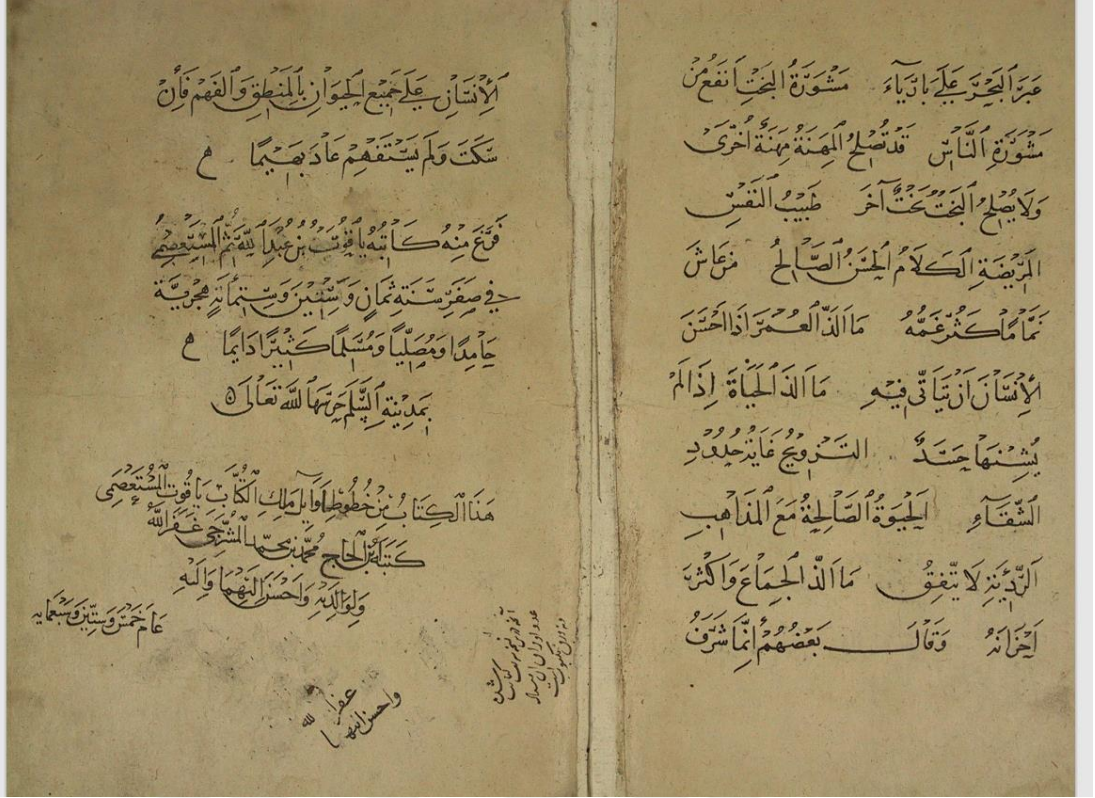 عَبَرَ البَحْرَ عَلَى بَارِيَاءَ مَشْوَرَةُ البَخْتِ اَنفَعُ مِنْ
مَشْوَرَةِ النَّاسِ قَدْ تُصْلِحُ المِهْنَةُ مِهْنَةً أُخْرَى
وَلَا يُصْلِحُ البَخْتُ بَخْتٌ آخَر طَبِيبُ النَّفْسِ
المَرِيضَةِ الكَلَامُ الحَسَنُ الصَّالِحُ مَن عَاشَ
نَمَّامًا كَثُرَ غَمُّهُ مَا اَلَذَّ العُمرَ اِذَا اَحْسَنَ
الأِنْسَانَ اَنْ يَتَأتَّى فِيْهِ مَا اَلَذَّ الحَيَاةَ إِذَا لَمْ
يُشِنْهَا حَسَدٌ التَزويجُ غَايَةُ حُدُودِ
الشَّقَآءِ الحَيوةُ الصَّالِحةُ مَعَ المَذَاهِبِ
الرَّدِئيَةِ لَا يَتَّفِقُ مَا اَلَذَّ الجِمَاعَ وَاَكثرَ
اَحْزَانَهُ وَقَالَ بَعْضُهُمْ اِنَّمَا شَرَفُ
الأِنْسَانِ عَلَى جَمِيعِ الحَيَوَانِ بِالمَنْطِقِ وَالفَهْمِ فَاِنْ
سَكَتَ وَلَمْ يَسْتَفْهِمْ عَادَ بَهِيْمًا
فَرَغَ مِنْهُ كَاتِبُهُ يَاقُوتُ بْنُ عَبْدِ اللهِ ثُمَّ المُسْتَعْصِمِيُّ
فِي صَفَرِ سَنَةِ ثَمَانٍ وَسِتِّمِائَةٍ هِجْرِيَّة
حَامِدًا وَمُصَلِّيًا وَمُسَلِّمًا كَثِيْرًا دَايِمًا
بِمَدِينَةِ السَّلَمِ حَرَسَهَا اللهُ تَعَالَى
هَذَا الكِتَابُ مِنْ خُطُوطِ اَوَايِلِ مَلِكِ الكُتَّابِ يَاقُوتِ المُسْتَعْصِمِي
كَتَبَهُ بْنُ الحَاج مُحَمَّدِ بنِ مُحَمَّدٍ غَفَرَ اللهُ
وَلِوَالِدَيْهِ وَاَحْسَنَ اِلَيْهِمَا وَاِلَيْهِ
عَامَ خَمْسٍ وَسِتِّينَ وَسَبْعمايه
غفر الله
واحسن اليهما